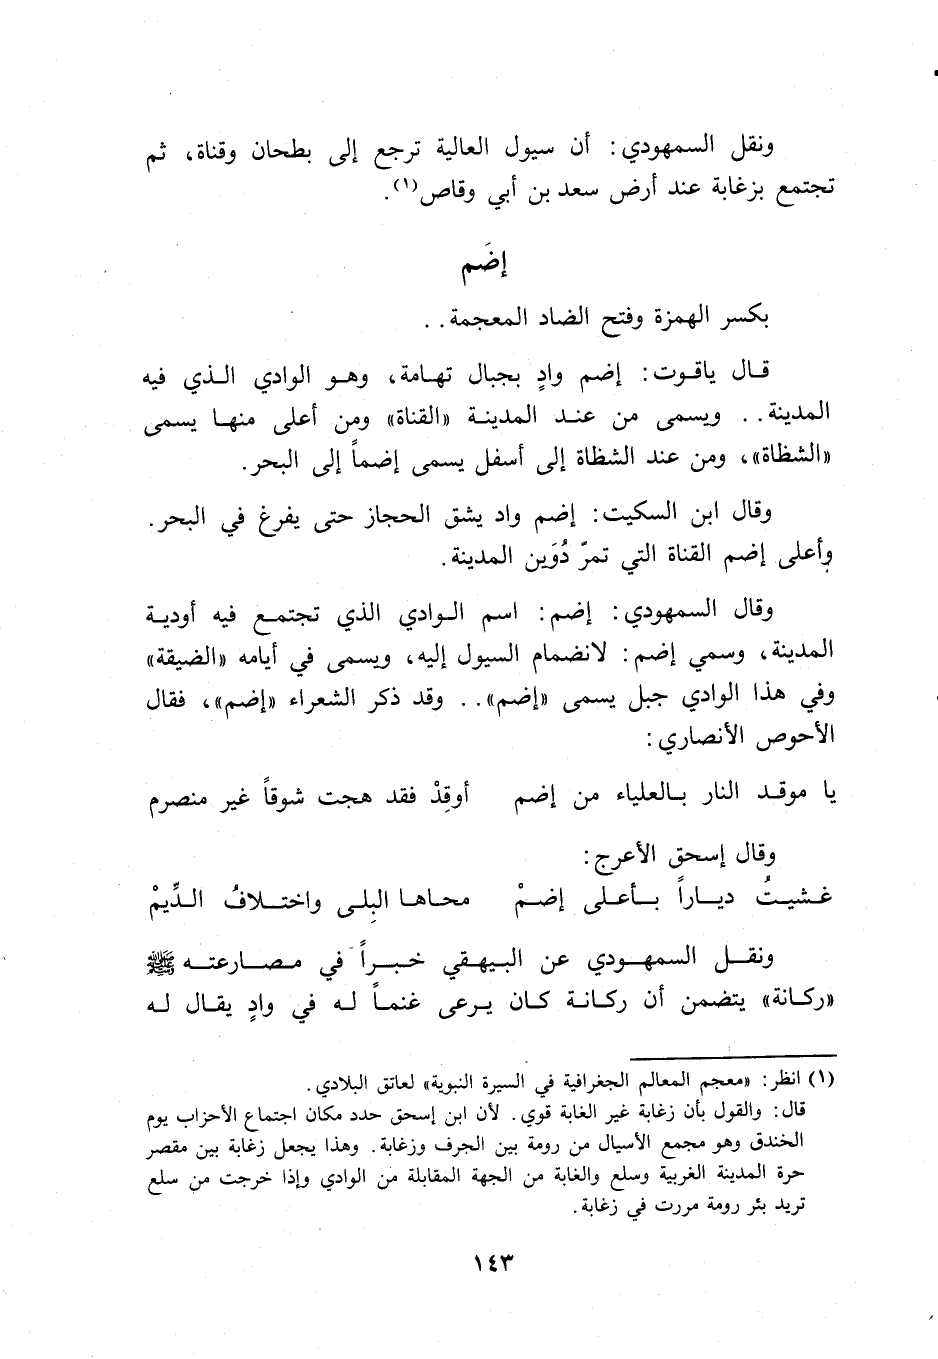 ونقل السمهودي: أن سيول العالية ترجع إلى بطحان وقناة، ثم
تجتمع بزغابة عند أرض سعد بن أبي وقاص(١).
إضَم
بكسر الهمزة وفتح الضاد المعجمة. .
قال ياقوت: إضم وادٍ بجبال تهامة، وهو الوادي الذي فيه
المدينة. . ويسمى من عند المدينة «القناة» ومن أعلى منها يسمى
«الشظاة»، ومن عند الشظاة إلى أسفل يسمى إضماً إلى البحر.
وقال ابن السكيت: إضم واد يشق الحجاز حتى يفرغ في البحر.
وأعلى إضم القناة التي تمرّ دُوَين المدينة.
وقال السمهودي: إضم: اسم الوادي الذي تجتمع فيه أودية
المدينة، وسمي إضم: لانضمام السيول إليه، ويسمى في أيامه «الضيقة»
وفي هذا الوادي جبل يسمى «إضم». . وقد ذكر الشعراء «إضم»، فقال
الأحوص الأنصاري:
يا موقد النار بالعلياء من إضم أوقِدْ فقد هجت شوقاً غير منصرم
وقال إسحق الأعرج:
غشيتُ دياراً بأعلى إضمْ محاها البِلى واختلافُ الدِّيمْ
ونقل السمهودي عن البيهقي خبراً في مصارعته ﷺ
«ركانة» يتضمن أن ركانة كان يرعى غنماً له في وادٍ يقال له
(١) انظر: «معجم المعالم الجغرافية في السيرة النبوية» لعاتق البلادي.
قال: والقول بأن زغابة غير الغابة قوي. لأن ابن إسحق حدد مكان اجتماع الأحزاب يوم
الخندق وهو مجمع الأسيال من رومة بين الجرف وزغابة. وهذا يجعل زغابة بين مقصر
حرة المدينة الغربية وسلع والغابة من الجهة المقابلة من الوادي وإذا خرجت من سلع
تريد بئر رومة مررت في زغابة.
١٤٣